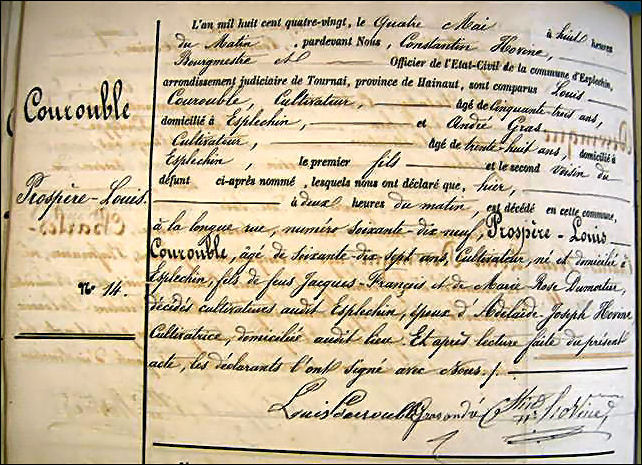 L'an mil huit cent quatre-vingt, le Quatre Mai à huit heures
du Matin, pardevant Nous, Constantin Hovine,
Bourgmestre Officier de l'Etat-Civil de la commune d'Esplechin,
arrondissement judiciaire de Tournai, province de Hainaut, sont comparus Louis
Courouble, Cultivateur, âgé de Cinquante trois ans,
domicilié à Esplechin, et André Gras
Cultivateur, âgé de trente huit ans, domicilié à
Esplechin, le premier fils et le second voisin du
défunt ci-après nommé, lesquels nous ont déclaré que, hier,
à deux heures du matin, est décédé en cette commune,
à la longue rue, numéro soixante-dix neuf, Prospère-Louis
Courouble, âgé de soixante-dix sept ans, Cultivateur, né et domicilié à
Esplechin, fils de feus Jacques-François et de Marie Rose Dumortier,
décédés cultivateurs audit Esplechin, époux d'Adelaïde-Joseph Hovine
Cultivatrice, domiciliée audit lieu. Et après lecture faite du présent
acte, les déclarants l'ont signé avec Nous./.
Louis Courouble Gras andré Hovine
Courouble
Prospère-Louis.
N° 14.